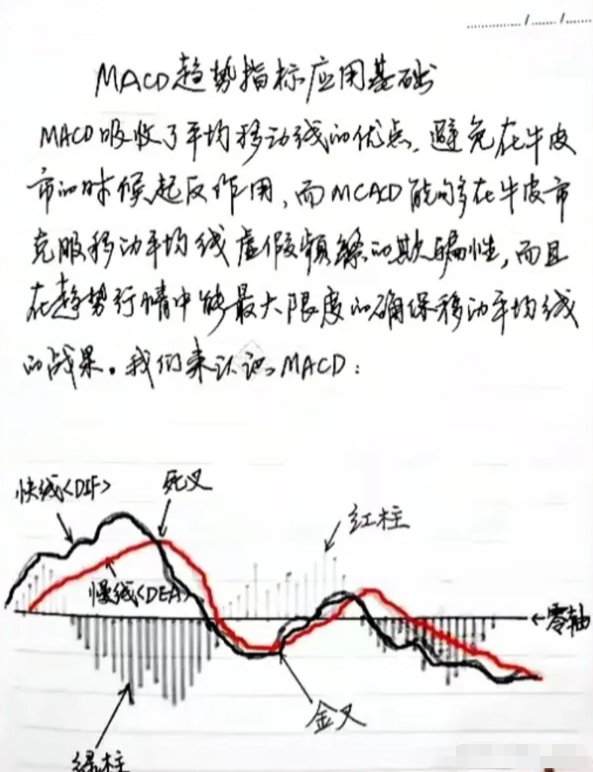 MACD趋势指标应用基础
MACD吸收了平均移动线的优点,避免在牛皮
市的时候起反作用,而MCACD能够在牛皮市
克服移动平均线虚假频繁的欺骗性,而且
在趋势行情中能最大限度的确保移动平均线
的战果。我们来认识MACD:
快线<DIF>
死叉
红柱
慢线<DEA>
←零轴
金叉
绿柱